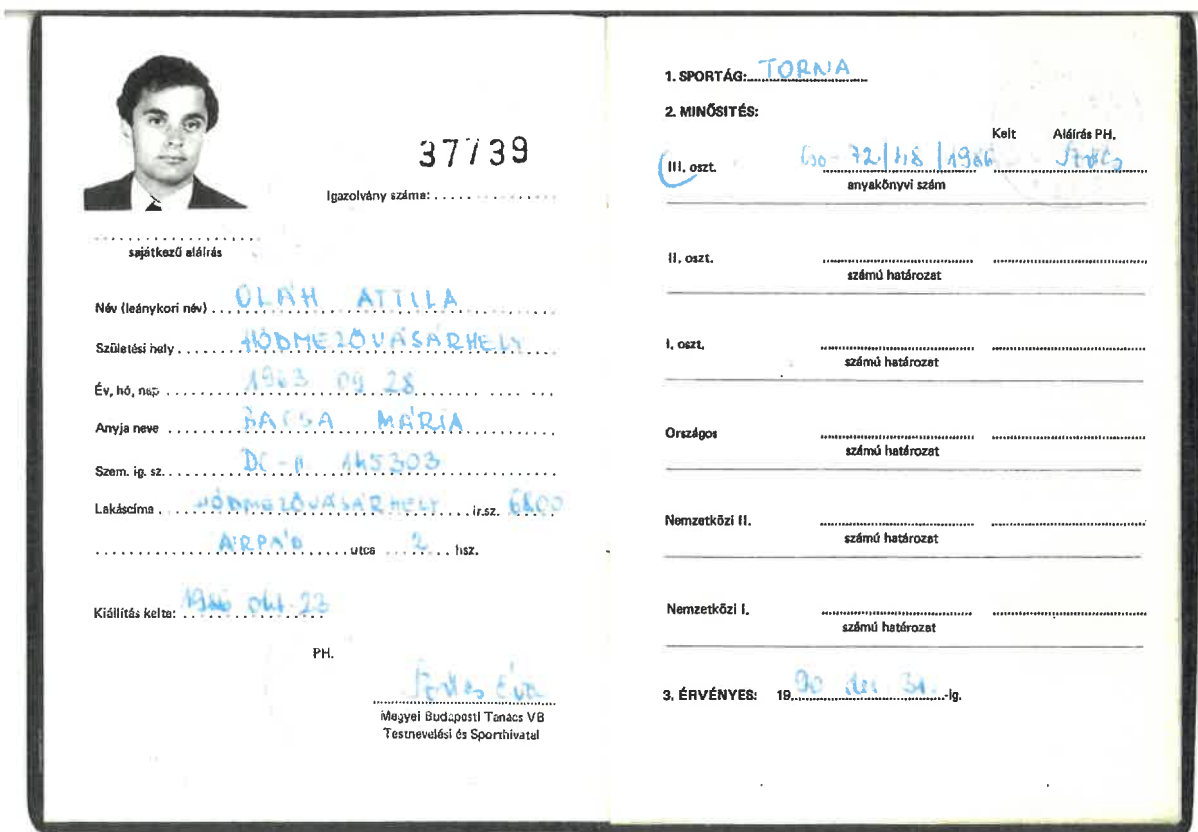 37739
Igazolvány száma: . . . . . . . . . . . . .
sajátkezű aláírás
Név (leánykori név) OLÁH ATTILA
Születési hely HÓDMEZŐVÁSÁRHELY
Év, hó, nap 1963 09 28
Anyja neve BACSA MÁRIA
Szem. ig. sz. 145303
Lakáscíma HÓDMEZŐVÁSÁRHELY ir.sz. 6800
ÁRPÁD utca 2 hsz.
Kiállítás kelte: 1986 okt 23
PH.
Éva
Megyei Budapesti Tanács VB
Testnevelési és Sporthivatal
1. SPORTÁG: TORNA
2. MINŐSITÉS:
Kelt Aláírás PH.
III. oszt. 1986
anyakönyvi szám
II. oszt.
számú határozat
I. oszt.
számú határozat
Országos
számú határozat
Nemzetközi II.
számú határozat
Nemzetközi I.
számú határozat
3. ÉRVÉNYES: 19 90 dec 31. -ig.